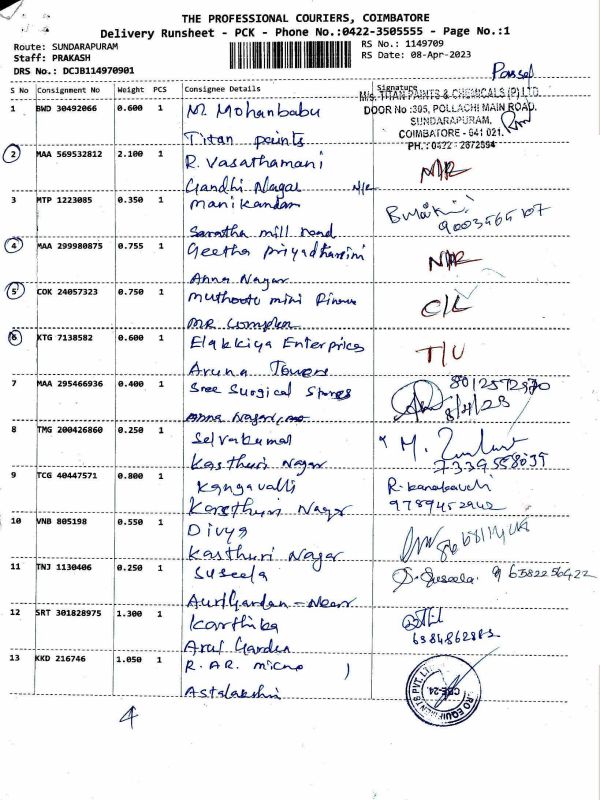 THE PROFESSIONAL COURIERS, COIMBATORE
Delivery Runsheet - PCK - Phone No.:0422-3505555 - Page No.:1
Route: SUNDARAPURAM
RS No.: 1149709
Staff: PRAKASH
RS Date: 08-Apr-2023
DRS No.: DCJB114970901
S No Consignment No Weight PCS Consignee Details Signature
M/s. TITAN PAINTS & CHEMICALS (P) LTD.
1 BWD 30492066 0.600 1 M. Mohanbabu
DOOR No :305, POLLACHI MAIN ROAD,
SUNDARAPURAM,
COIMBATORE - 641 021.
Titan paints
PH. : 0422 - 2672594
2 MAA 569532812 2.100 1 R. Vasathamani
Gandhi Nagar N/R
3 MTP 1223085 0.350 1 Manikandan
Saratha mill road
4 MAA 299980875 0.755 1 Geetha priyadharsini
Anna Nagar
5 COK 24057323 0.750 1 muthootu mini
C/L
MR complex
6 KTG 7138582 0.600 1 Elakkiya Enterprices
T/U
Aruna Towers
7 MAA 295466936 0.400 1 Sree Surgical Stores
8/4/23
Anna Nagar
8 TMG 200426860 0.250 1 Selvakumar
Kasthuri Nagar 7339558039
9 TCG 40447571 0.800 1 Kangavalli
Kasthuri Nagar 9789452942
10 VNB 805198 0.550 1 Divya
Kasthuri Nagar
11 TNJ 1130406 0.250 1 Suseela
S. Suseela. 9 6382256422
Garden - Near
12 SRT 301828975 1.300 1 Karthika
Arul Garden
13 KKD 216746 1.050 1 R. AR. micro
Astalakshmi
CBE-24.
4